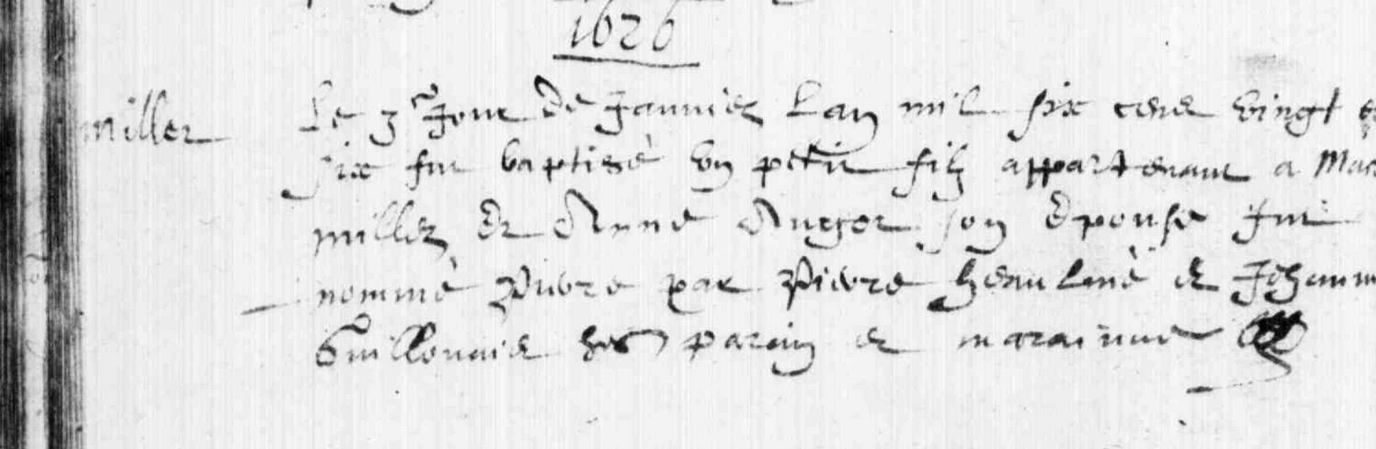 1626
miller
Le 3e Jour de Janvier Lan mil six cens vingt et
six fut baptisé un petit filz appartenant a
miller et Anne Auger son Epouse fut
nommé Pierre par Pierre et Jehanne
ses parain et maraine